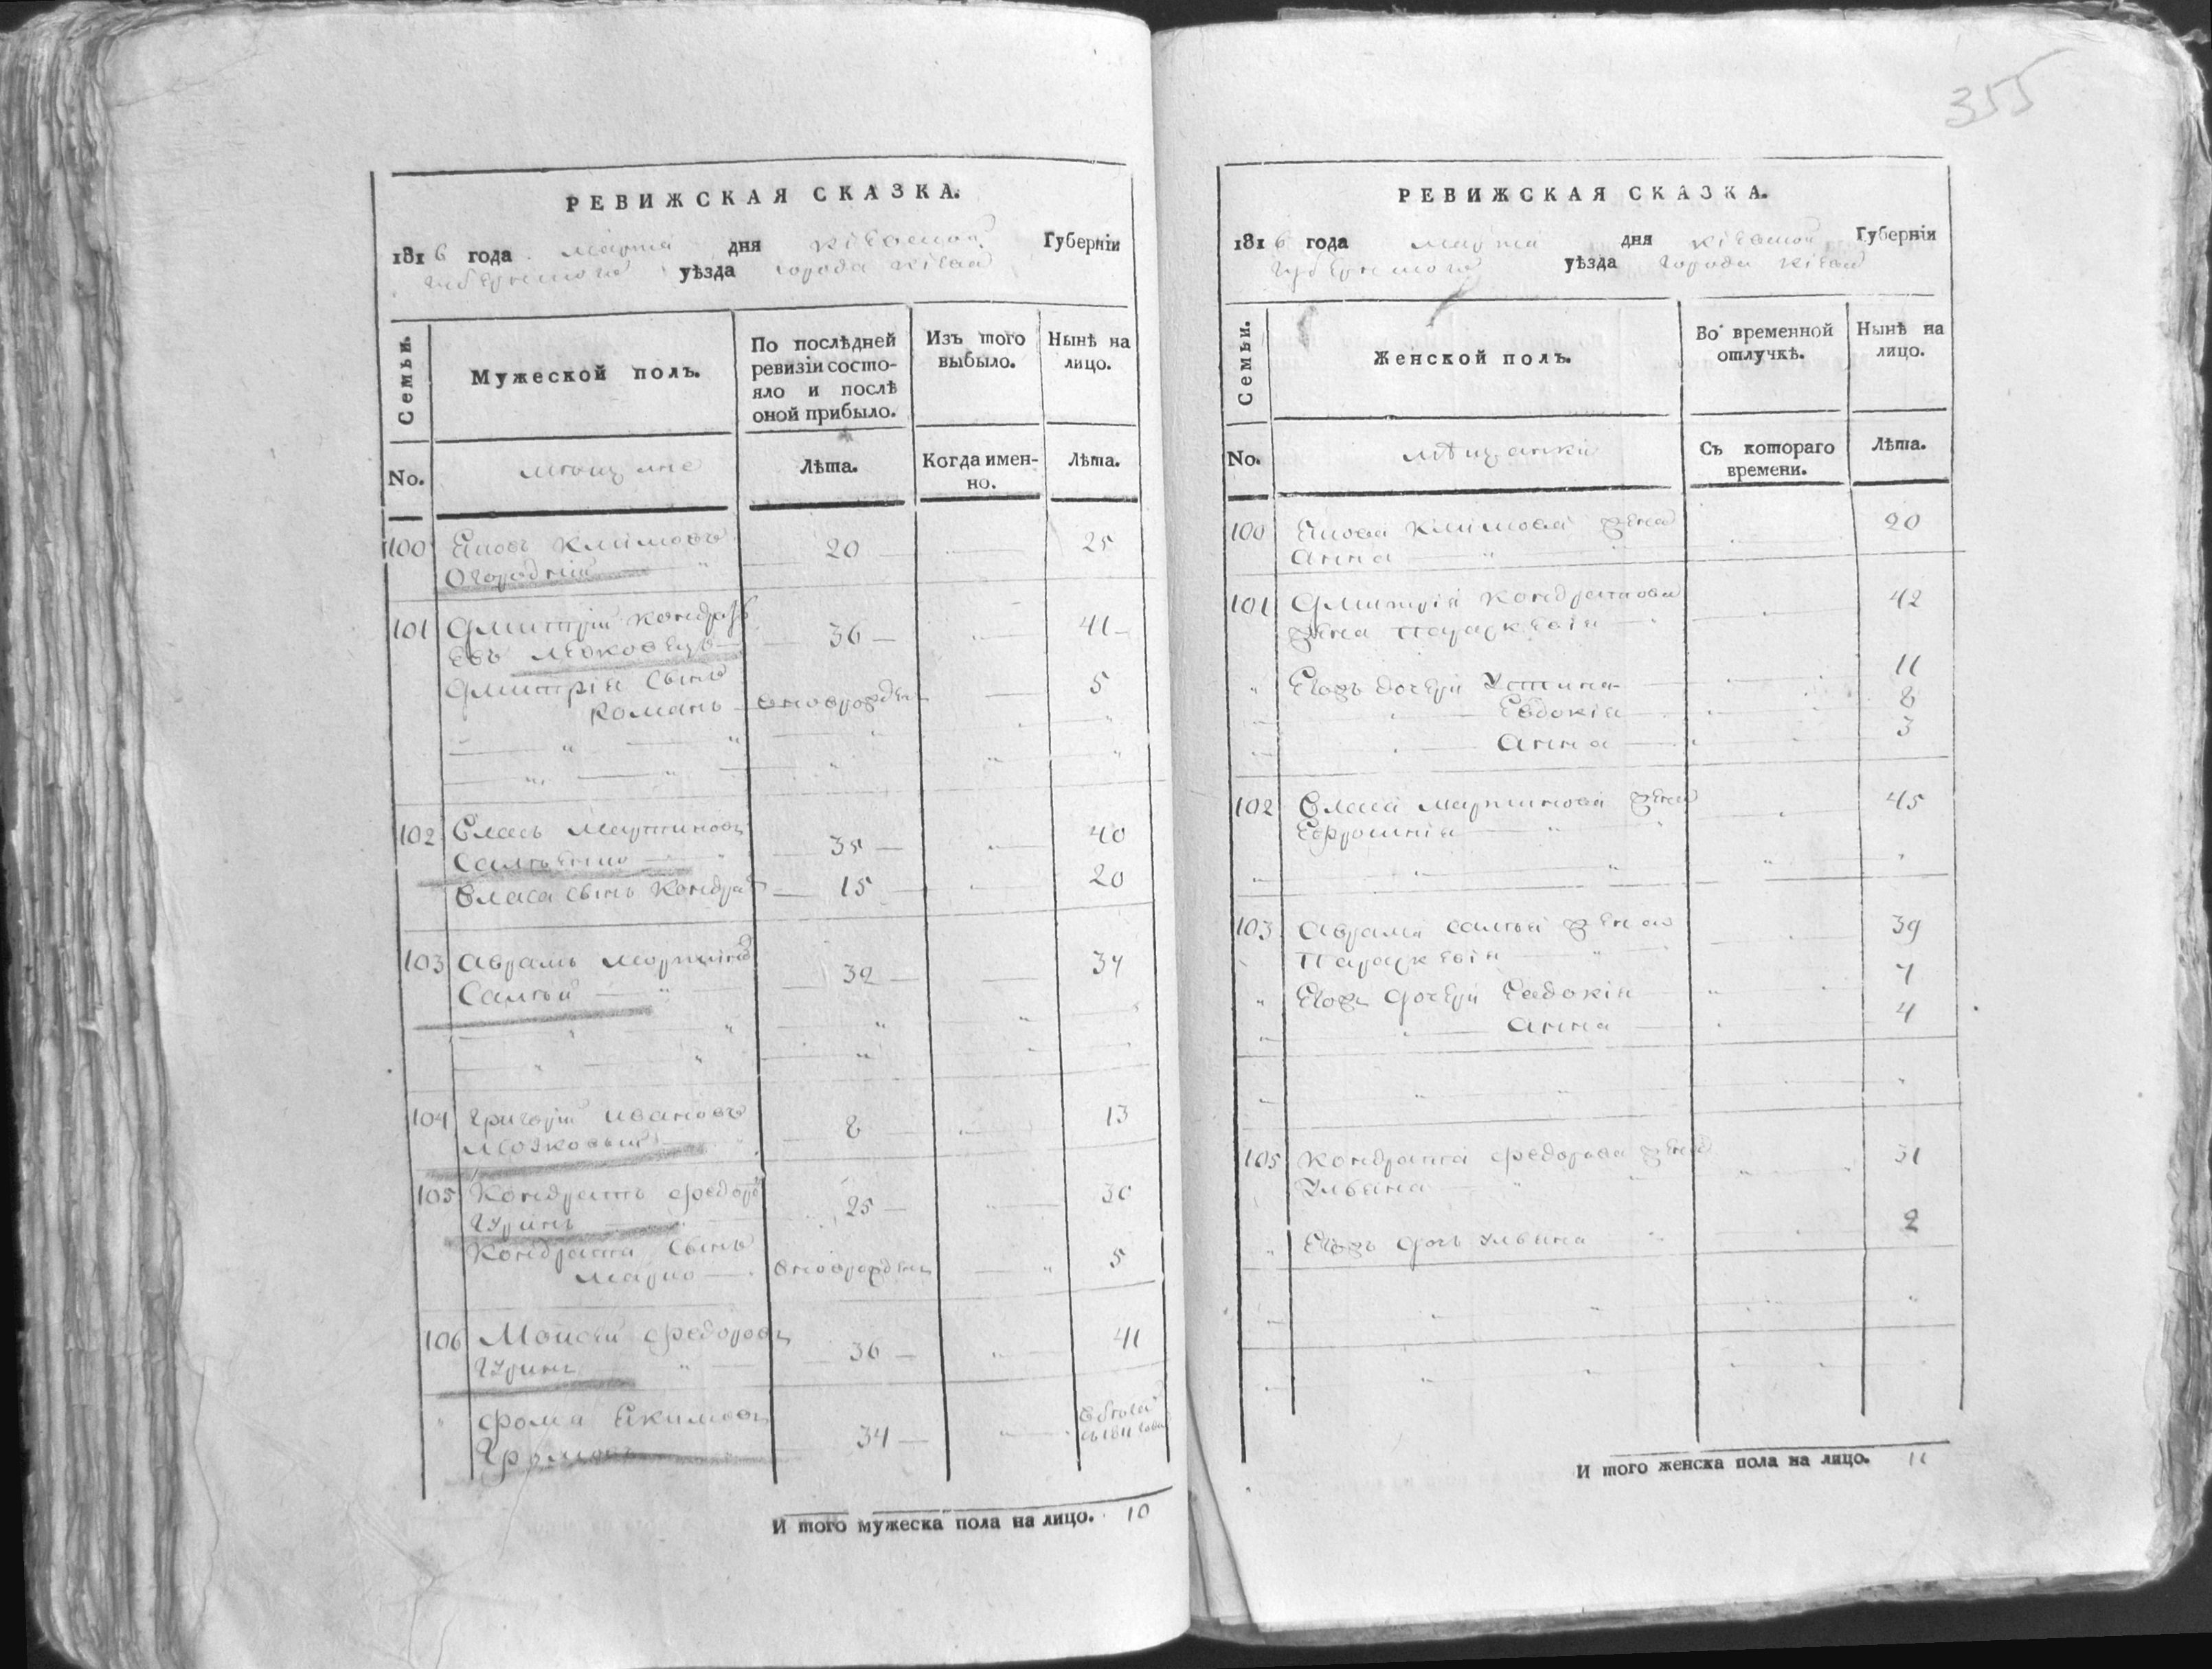 РЕВИЖСКАЯ СКАЗКА.
1816 года марта дня Кіевской Губерніи
губернского уѣзда города Кіева
Семьи.
Мужеской полъ.
По послѣдней
ревизіи состо-
яло и послѣ
оной прибыло.
Изъ того
выбыло.
Нынѣ на
лицо.
No.
мѣщане
Лѣта.
Когда имен-
но.
Лѣта.
100 Яковъ Климовъ 20 25
Огородній
101 Дмитрій Кондрать 36 41
евъ
Дмитрія сынъ 5
Романъ новорожден
102 Власъ Мартиновъ 35 40
Власа сынъ Кондрат 15 20
103 Аврамъ Мартинов 32 37
Салгый
104 Григорій Ивановъ 8 13
105 Кондратъ Федоро 25 30
Гуринъ
Кондрата сынъ
Марко новорожден 5
106 Мойсей Федоровъ 36 41
Гуринъ
Фома Якимовъ 34
И того мужеска пола на лицо. 10
355
РЕВИЖСКАЯ СКАЗКА.
1816 года марта дня Кіевской Губерніи
губернского уѣзда города Кіева
Семьи.
Женской полъ.
Во временной
отлучкѣ.
Нынѣ на
лицо.
No.
мѣщанки
Съ котораго
времени.
Лѣта.
100 Якова Климова жена 20
Анна
101 Дмитрія Кондратьова 42
жена Параскевія
Егожъ дочери Устина 11
Евдокія 8
Анна 3
102 Власа Мартинова жена 45
Ефросинія
103 Аврама Салгыя жена 39
Параскевія
Егожъ дочери Евдокія 7
Анна 4
105 Кондрата Федорова жена 31
Ульяна
Егожъ дочь Ульяна 2
И того женска пола на лицо. 11